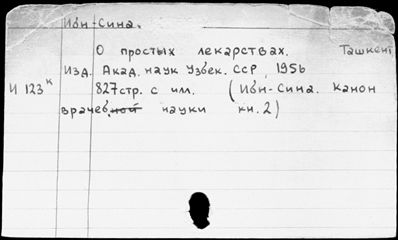 Ибн-Сина.
О простых лекарствах. Ташкент
Изд. Акад. наук Узбек. ССР, 1956
И 123к 827 стр. с им. (Ибн-Сина. Канон
врачебной науки кн. 2)